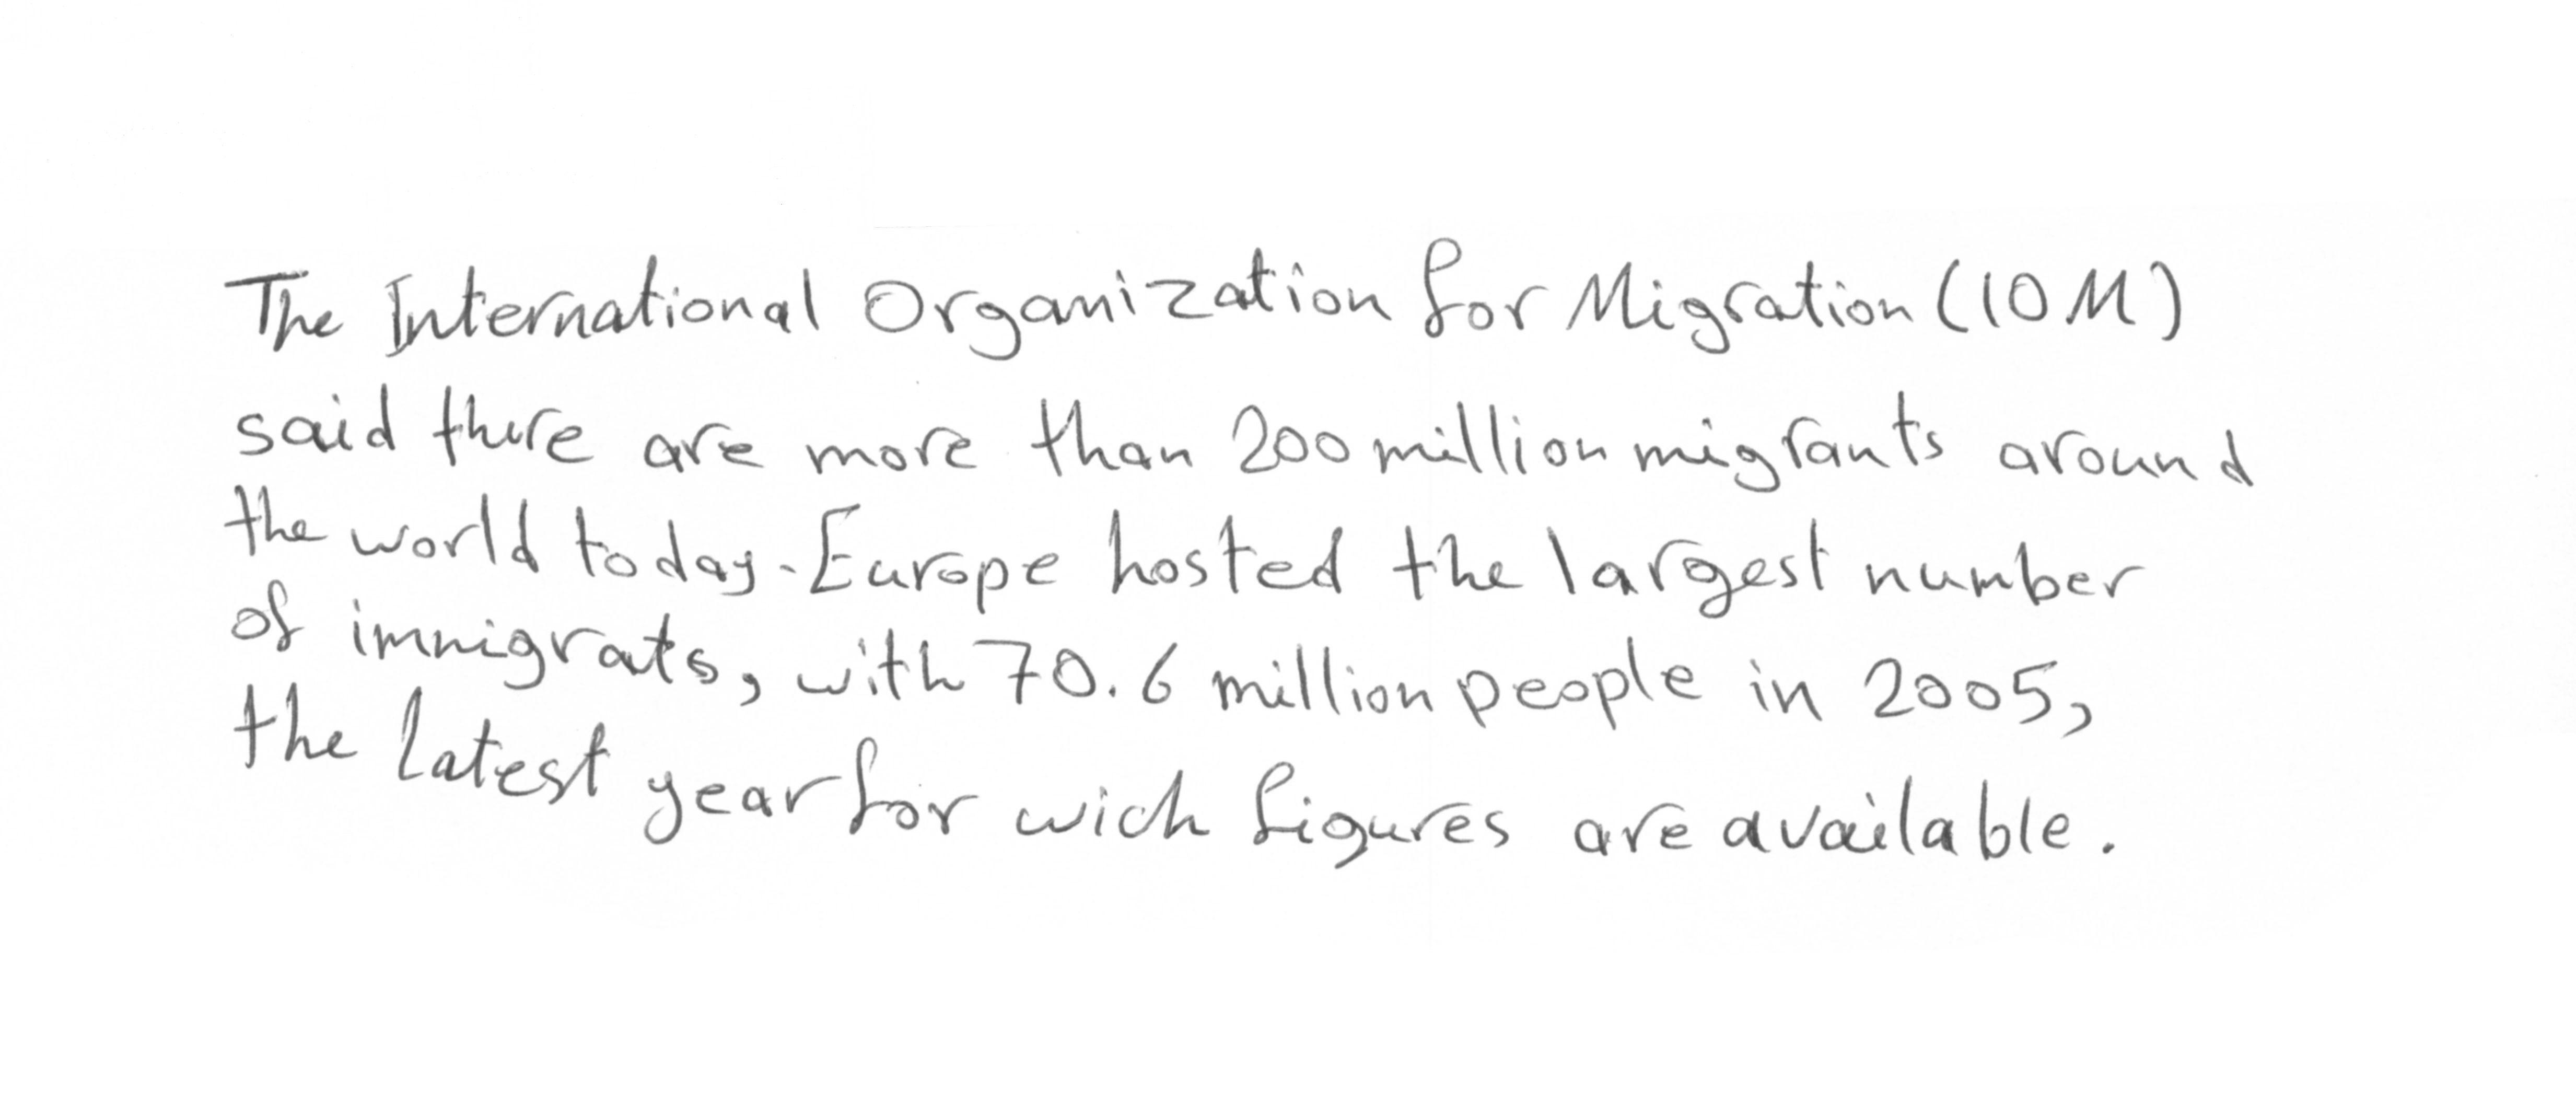 The International Organization for Migration (IOM)
said there are more than 200 million migrants around
the world today. Europe hosted the largest number
of immigrats, with 70.6 million people in 2005,
the latest year for wich figures are available.